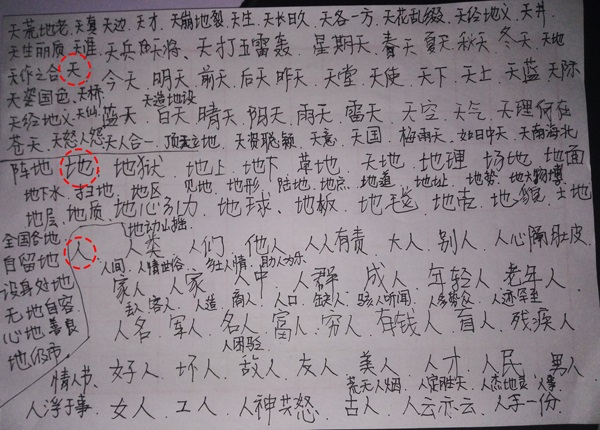 天荒地老.天真.天边.天才.天崩地裂.天生.天长日久.天各一方.天花乱缀.天经地义.天井
天生丽质.天准.天兵天将、天打五雷轰. 星期天. 春天.夏天.秋天.冬天.天地
天作之合 天. 今天.明天.前天.后天.昨天.天堂.天使.天下.天上.天蓝.天际
天姿国色.天桥 天造地设
天经地义.天仙 蓝天.白天.晴天.阴天.雨天.雷天.天空.天气.天理何在
苍天.天怒人怨 天人合一.顶天立地.天资聪颖.天意.天国.梅雨天.如日中天.天南海北
阵地 地. 地狱.地上.地下.草地.天地.地理.场地.地面
地下水.扫地.地区 见地.地形.陆地.地点.地道.地址.地势.地大物博
地层.地质.地心引力.地球、地板、地毯.地壳.地貌.土地
全国各地 地动山摇
自留地 人. 人类.人们.他人.人人有责.大人.别人.人心隔肚皮
人间.人情世俗.人情.助人为乐
设身处地 家人.人家.人中.人群.成人.年轻人.老年人
无地自容 主人.客人.人造.商人.人口.缺人.骇人听闻.人多势众.人迹罕至
心地善良 人名.军人.名人.富人.穷人.有钱人.盲人.残疾人
地 人困
情人节、好人.坏人.敌人.友人.美人.人才.人民.男人
荒无人烟.人定胜天.人杰地灵.人事
人浮于事.女人.工人.人神共怒.古人.人云亦云.人手一份